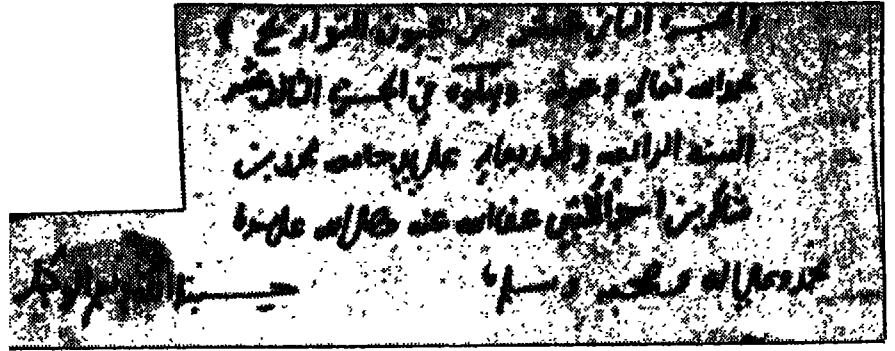 الجزء الثاني عشر من عيون التواريخ
بحمد الله تعالى وعونه ويتلوه في الجزء الثالث عشر
السنة الرابعة على يد جامعه محمد بن
شاكر بن أحمد الكتبي عفا الله عنه وصلى الله على سيدنا
محمد وعلى اله وصحبه وسلم حسبنا الله ونعم الوكيل